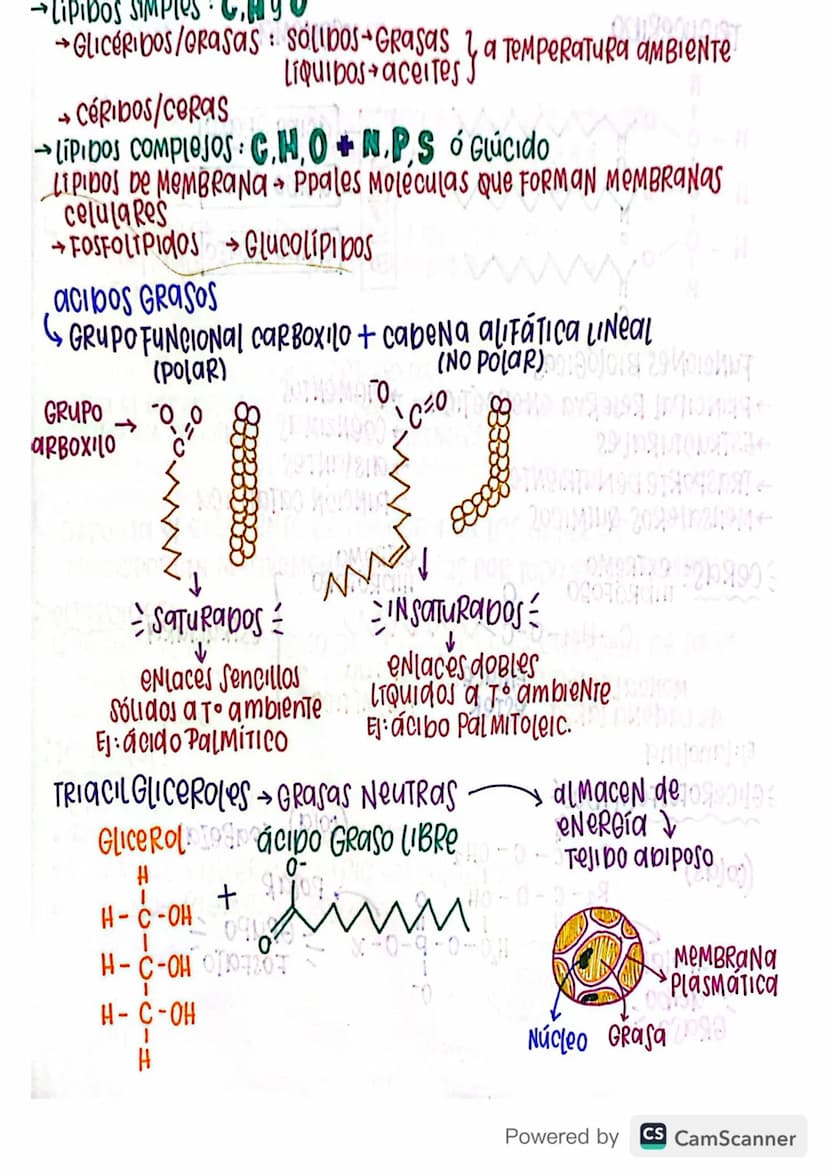 →LÍPIDOS SIMPLES: C, H y O
→GLICÉRIDOS/GRASAS: SÓLIDOS→GRASAS } a TEMPERATURA AMBIENTE
LÍQUIDOS→aceites
→CÉRIDOS/CERAS
→LÍPIDOS COMPLEJOS: C, H, O + N, P, S ó GLÚCIDO
LÍPIDOS DE MEMBRANA→ PPales MOLÉCULAS QUE FORMAN MEMBRANAS
celulares
→FOSFOLÍPIDOS →GLUCOLÍPIDOS
ACIDOS GRASOS
GRUPO FUNCIONAL CARBOXILO + CADENA ALIFÁTICA LINEAL
(POLAR) (NO POLAR)
GRUPO → ⁻O O
ARBOXILO C
⁻O C=O
SATURADOS
INSATURADOS
ENLACES SENCILLOS
SÓLIDOS A Tº ambiente
Ej: ácido PALMÍTICO
ENLACES DOBLES
LÍQUIDOS a Tº ambiente
Ej: ácibo PALMITOLEIC.
TRIACILGLICEROLES → GRASAS NEUTRAS → ALMACEN de
ENERGÍA ↓
TEJIDO ADIPOSO
GLICEROL + ÁCIDO GRASO LIBRE
H
H - C - OH
H - C - OH
H - C - OH
H
O⁻
O
MEMBRANA
PLASMÁTICA
NÚCLEO GRASA
Powered by CS CamScanner